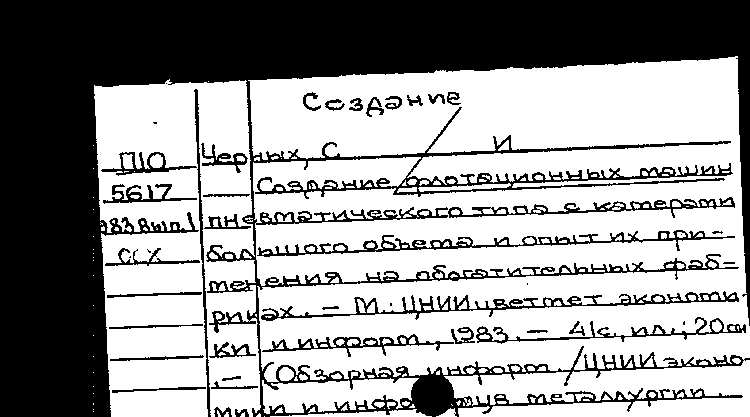 Создание
П10
5617
983 вып. 1
ССХ
Черных, С И
Создание флотационных машин
пневматического типа с камерами
большого объема и опыт их при-
менения на обогатительных фаб-
риках. - М.: ЦНИИцветмет экономи-
ки и информ., 1983. - 41с., ил.; 20см
.- (Обзорная информ. / ЦНИИ эконо-
мики и металлургии.